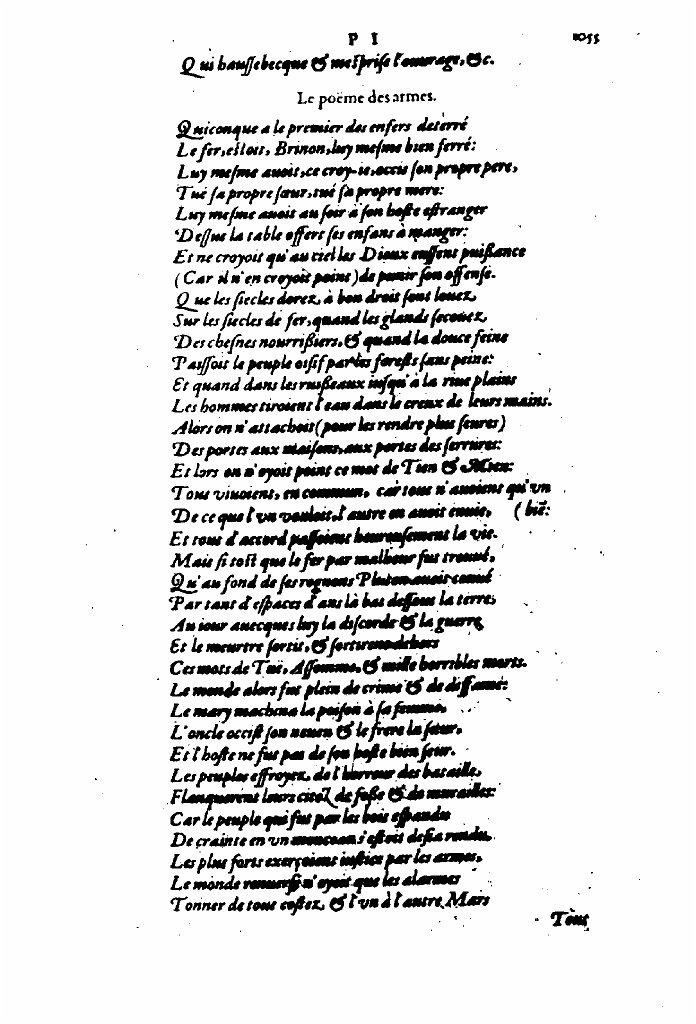 P I 1055
Qui haussebecque & mesprise l'ouurage, &c.
Le poëme des armes.
Quiconque a le premier des enfers deterré
Le fer, estoit, Brinon, luy mesme bien ferré:
Luy mesme auoit, ce croy-ie, occis son propre pere,
Tué sa propre sœur, tué sa propre mere:
Luy mesme auoit au soir à son hoste estranger
Dessus la table offert ses enfans à manger:
Et ne croyoit qu'au ciel les Dieux eussent puissance
(Car il n'en croyoit point) de punir son offense.
Que les siecles dorez, à bon droit sont louez,
Sur les siecles de fer, quand les glands secouez,
Des chesnes nourrissiers, & quand la douce feine
Paissoit le peuple oisif par les forests sans peine:
Et quand dans les ruisseaux iusqu'à la riue plains
Les hommes tiroient l'eau dans le creux de leurs mains.
Alors on n'attachoit (pour les rendre plus seures)
Des portes aux maisons, aux portes des serrures:
Et lors on n'oyoit point ce mot de Tien & Mien:
Tous viuoient, en commun, car tous n'auoient qu'vn
De ce que l'vn vouloit, l'autre en auoit enuie, (biē:
Et tous d'accord passoient heureusement la vie.
Mais si tost que le fer par malheur fut trouué,
Qu'au fond de ses rognons Pluton auoit couué
Par tant d'espaces d'ans là bas dessous la terre,
Au iour auecques luy la discorde & la guerre
Et le meurtre sortit, & sortirent dehors
Ces mots de Tuë, Assomme, & mille horribles morts.
Le monde alors fut plein de crime & de diffame:
Le mary machina la poison à sa femme,
L'oncle occist son neueu & le frere la sœur,
Et l'hoste ne fut pas de son hoste bien seur.
Les peuples effroyez, de l'horreur des bataille,
Flanquerent leurs citez de fosse & de murailles:
Car le peuple qui fut par les bois espandu
De crainte en vn monceau s'estoit desia rendu,
Les plus forts exerçoient iustice par les armes,
Le monde renuersé n'oyoit que les alarmes
Tonner de tous costez, & l'vn à l'autre Mars
Tous